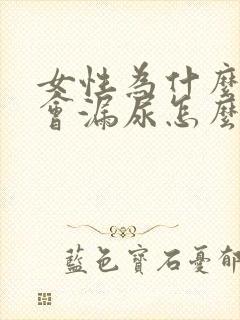 女性為什麼
會漏尿怎麼
藍色寶石憂郁